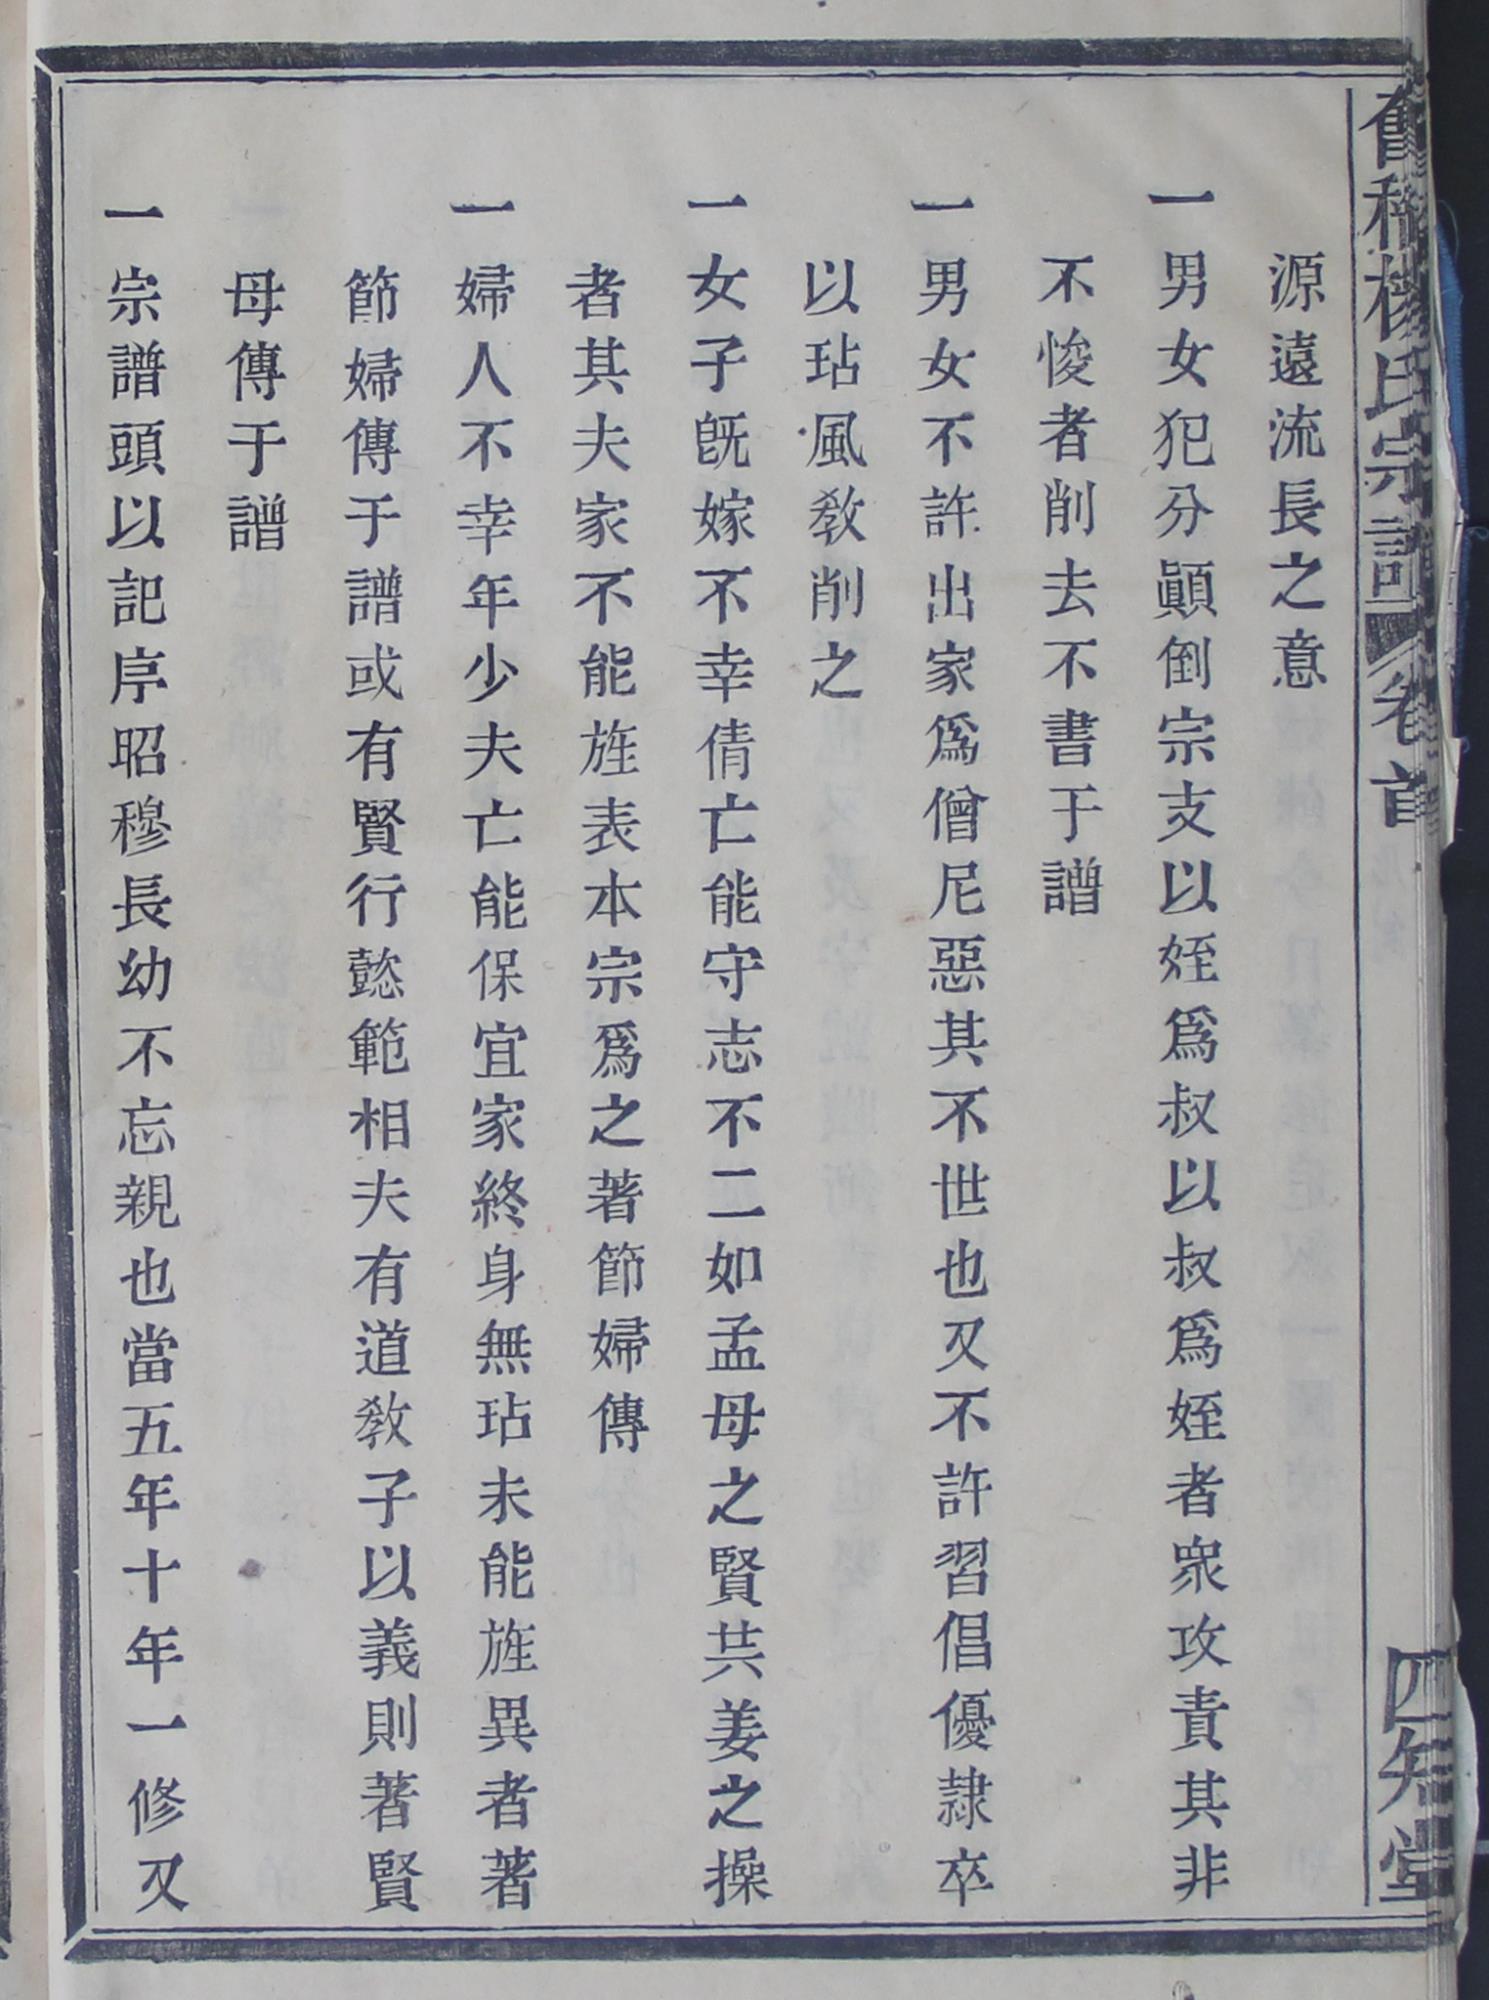 舊稱楊氏宗譜 卷首 四知堂
源遠流長之意
一男女犯分顚倒宗支以姪爲叔以叔爲姪者衆攻責其非
不悛者削去不書于譜
一男女不許出家爲僧尼惡其不世也又不許習倡優隷卒
以玷風敎削之
一女子旣嫁不幸倩亡能守志不二如孟母之賢共姜之操
者其夫家不能旌表本宗爲之著節婦傳
一婦人不幸年少夫亡能保宜家終身無玷未能旌異者著
節婦傳于譜或有賢行懿範相夫有道敎子以義則著賢
母傳于譜
一宗譜頭以記序昭穆長幼不忘親也當五年十年一修又